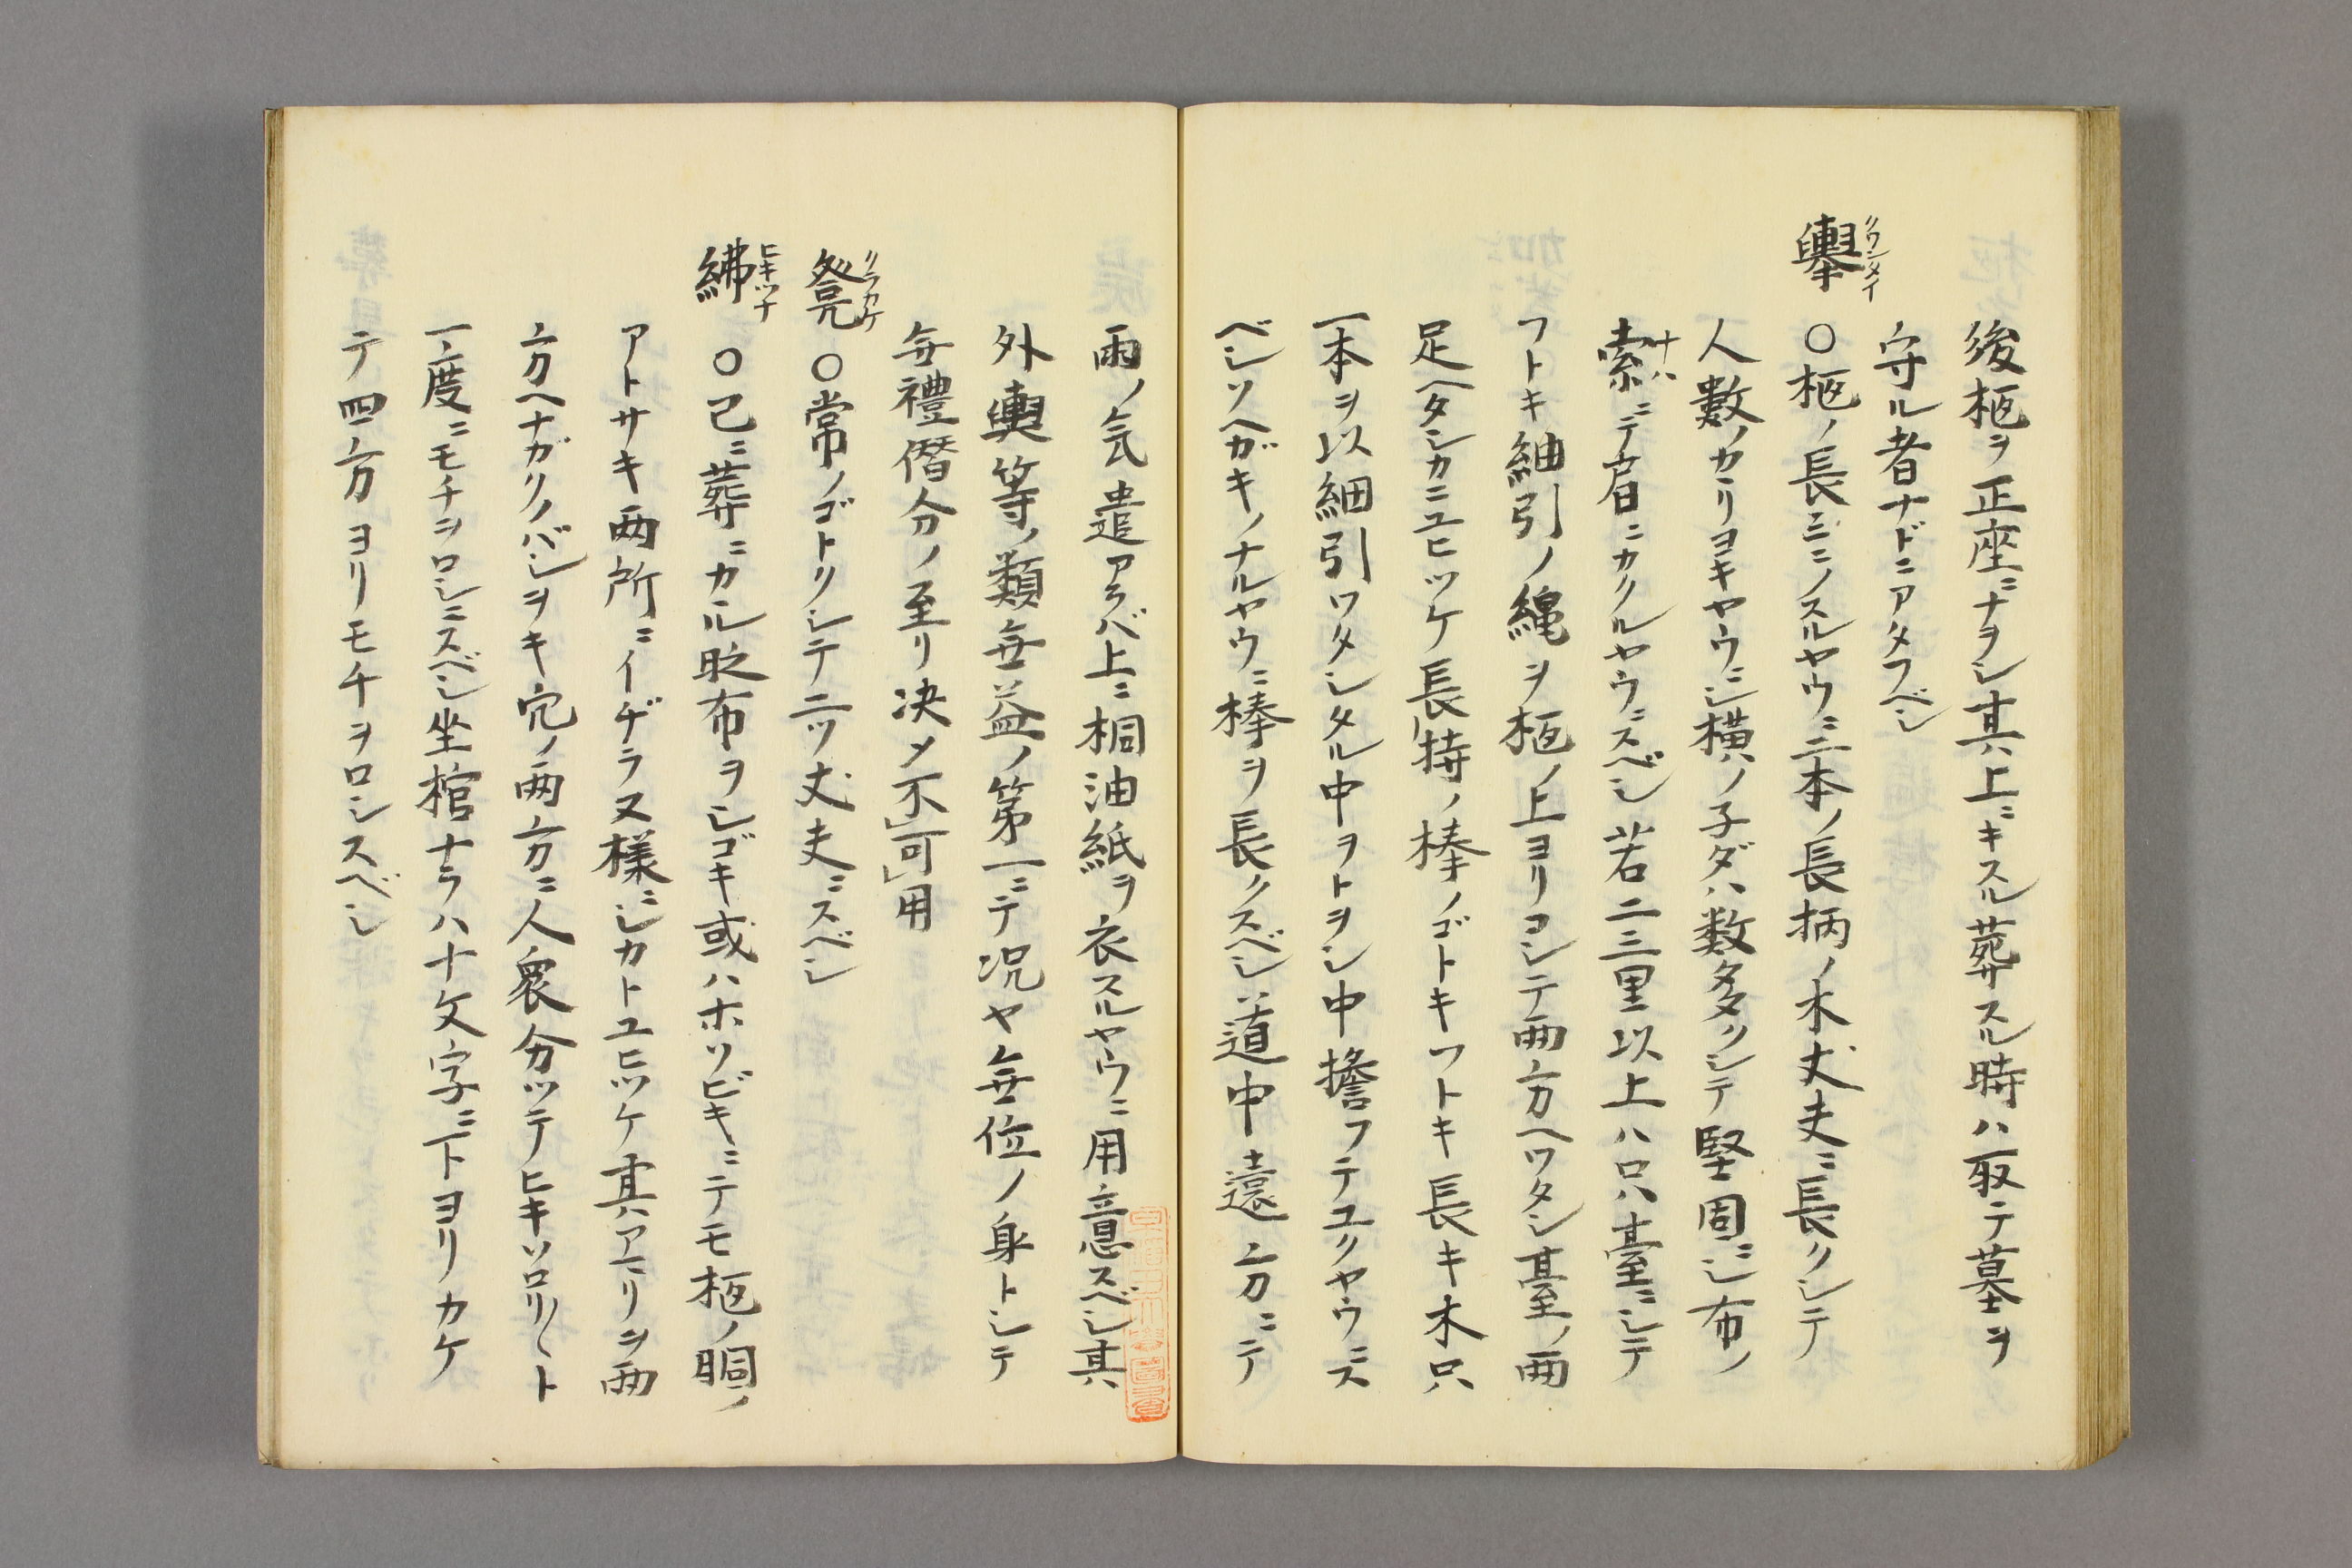 後柩ヲ正座ニナヲシ其上ニキスル葬スル時ハ取テ墓ヲ
守ル者ナドニアタフベシ
轝 クワンタイ
○柩ノ長ニノスルヤウニ二本ノ長柄ノ木丈夫ニ長クシテ
人數ノカヽリヨキヤウニシ横ノ子ダハ数多クシテ堅固ニシ布ノ
索ニテ肩ニカクルヤウニスベシ若二三里以上ハ只臺ニシテ
ナハ
フトキ紬引ノ縄ヲ柩ノ上ヨリコシテ兩方ヘワタシ臺ノ兩
足ヘタシカニユヒツケ長持ノ棒ノゴトキフトキ長キ木只
一本ヲ以細引ワタシタル中ヲトヲシ中擔フテユクヤウニス
ベシソヘガキノナルヤウニ棒ヲ長クスベシ道中遠方ニテ
雨ノ気遣アラバ上ニ桐油紙ヲ衣スルヤウニ用意スベシ其
外輿等ノ類無益ノ第一ニテ况ヤ無位ノ身トシテ
無禮僭分ノ至リ决メ不可用
凳 クラカケ
○常ノゴトクシテ二ツ丈夫ニスベシ
紼 ヒキツナ
○已ニ葬ニカヽル时布ヲシゴキ或ハホソビキニテモ柩ノ胴ノ
アトサキ兩所ニイヂラヌ様ニシカトユヒツケ其アマリヲ兩
方ヘナガクノバシヲキ穴ノ兩方ニ人衆分ツテヒキソロリ〱ト
一度ニモチヲロシニスベシ坐棺ナラハ十文字ニ下ヨリカケ
テ四方ヨリモチヲロシスベシ